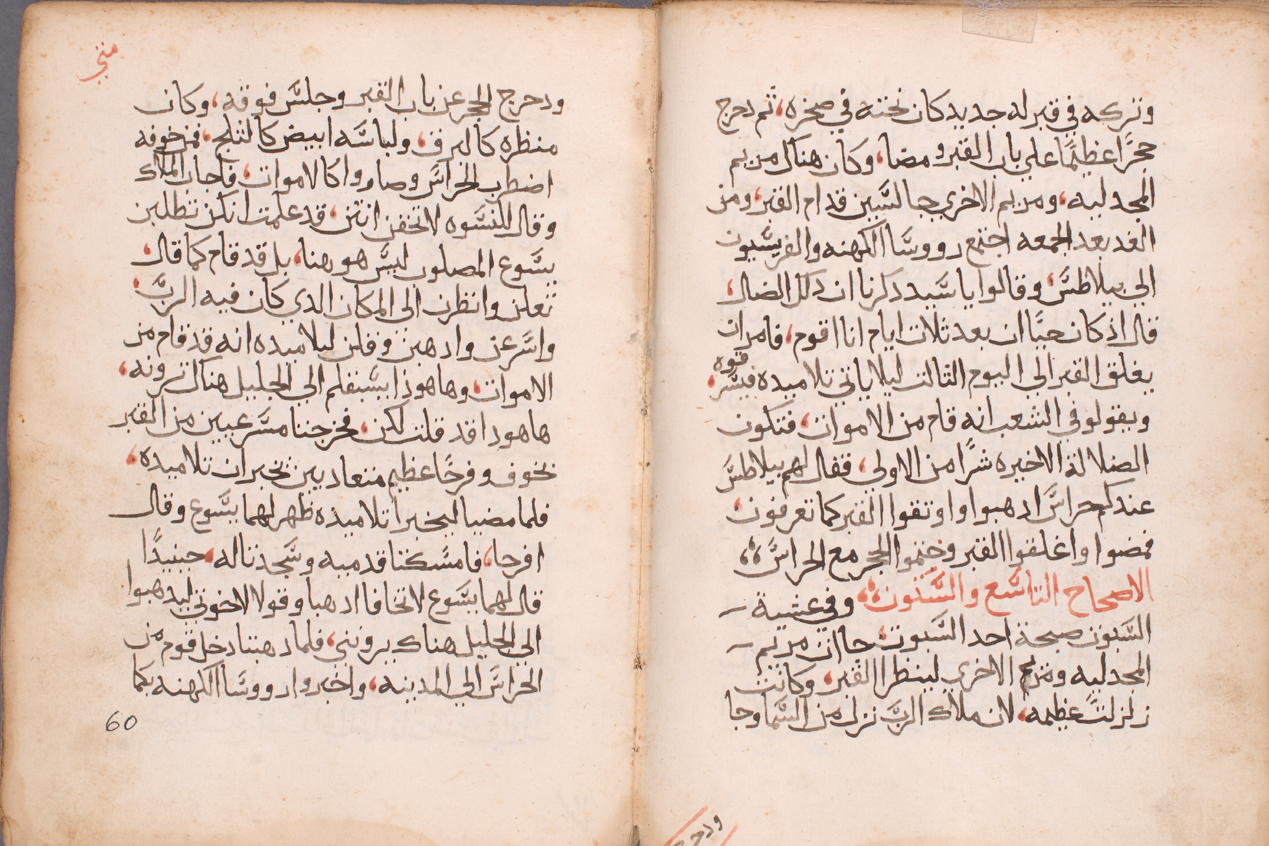 وتركه في قبر له جديد كان نحته في صخره، ثم دحرج
حجرًا عظيمًا علي باب القبر ومضا، وكان هناك مريم
المجدليه، ومريم الاخري جالسين قدام القبر، ومن
الغد بعد الجمعه اجتمع رووسا الكهنه والفريسيون
الي بيلاطس، وقالوا يا سيد ذكرنا ان ذلك الضال،
قال اذ كان حيًا ان بعد ثلاث ايام انا اقوم، فامر ان
يغلق القبر الي اليوم الثالث ليلا ياتي تلاميذه فيسرقوه،
ويقولو في الشعب انه قام من الاموات، فتكون
الضلالة الاخيره شرًا من الاولي، فقال لهم بيلاطس
عندكم حراس اذهبوا واوثقوا القبر كما تعرفون،
فمضوا واغلقوا القبر وختموا الحجر مع الحراس،
الاصحاح التاسع والستون، وفي عشية
السبوت صبحة احد السبوت، جاات مريم
المجدليه ومريم الاخري لينظرا القبر، وكانت
زلزلت عظيمه، لان ملاك الرب نزل من السما وجا
ودحرج
متي
ودحرج الحجر عن باب القبر وجلس فوقه، وكان
منظره كالبرق، ولباسه ابيض كالثلج، فمن خوفه
اضطرب الحراس وصاروا كالاموات، فاجاب الملاك
وقال للنسوه لا تخفن انتن، قد علمت انكن تطلبن
يسوع المصلوب ليس هو هنا، بل قد قام كما قال،
تعلن وانظرن الي المكان الذي كان فيه الرب،
واسرعن واذهبن وقلن لتلاميذه انه قد قام من
الاموات، وها هوذا يسبقكم الي الجليل هناك ترونه،
ها هوذا قد قلت لكن، فخرجتا مسرعتين من القبر
بخوف وفرحًا عظيم متعاديين تخبران تلاميذه،
فلما مضيا ليخبرا تلاميذه ظهر لهما يسوع وقال
افرحا، فامسكتا قدميه وسجدتا له، حينيذًا
قال لهما يسوع لا تخافا اذهبا وقولا لاخوتي ليذهبوا
الي الجليل هناك يروني، فلما ذهبتا دخل قوم من
الحراس الي المدينه، واخبروا رووسا الكهنه بكما
60